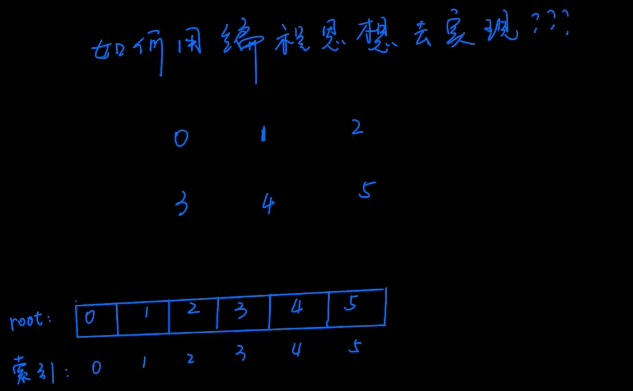 如何用编程思想去实现???
0 1 2
3 4 5
root: 0 1 2 3 4 5
索引: 0 1 2 3 4 5